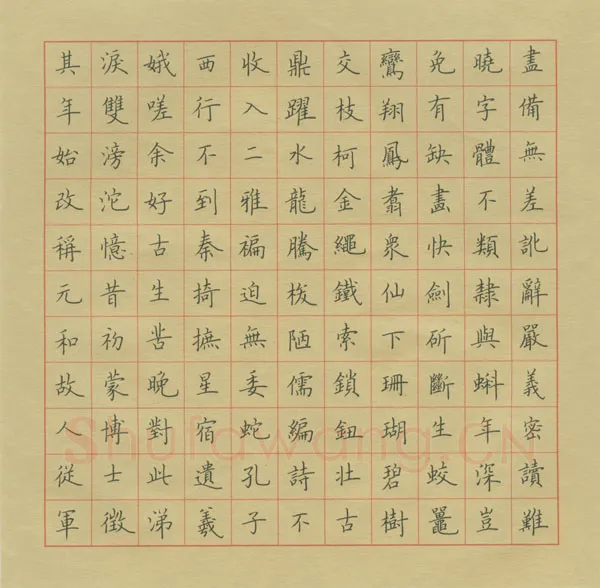 盡備無差訛辭嚴義密讀難
曉字體不類隸與蝌年深豈
免有缺畫快劍斫斷生蛟鼉
鸞翔鳳翥衆仙下珊瑚碧樹
交枝柯金繩鐵索鎖鈕壯古
鼎躍水龍騰梭陋儒編詩不
收入二雅褊迫無委蛇孔子
西行不到秦掎摭星宿遺羲
娥嗟余好古生苦晚對此涕
淚雙滂沱憶昔初蒙博士徵
其年始改稱元和故人從軍
Shufawang.CN